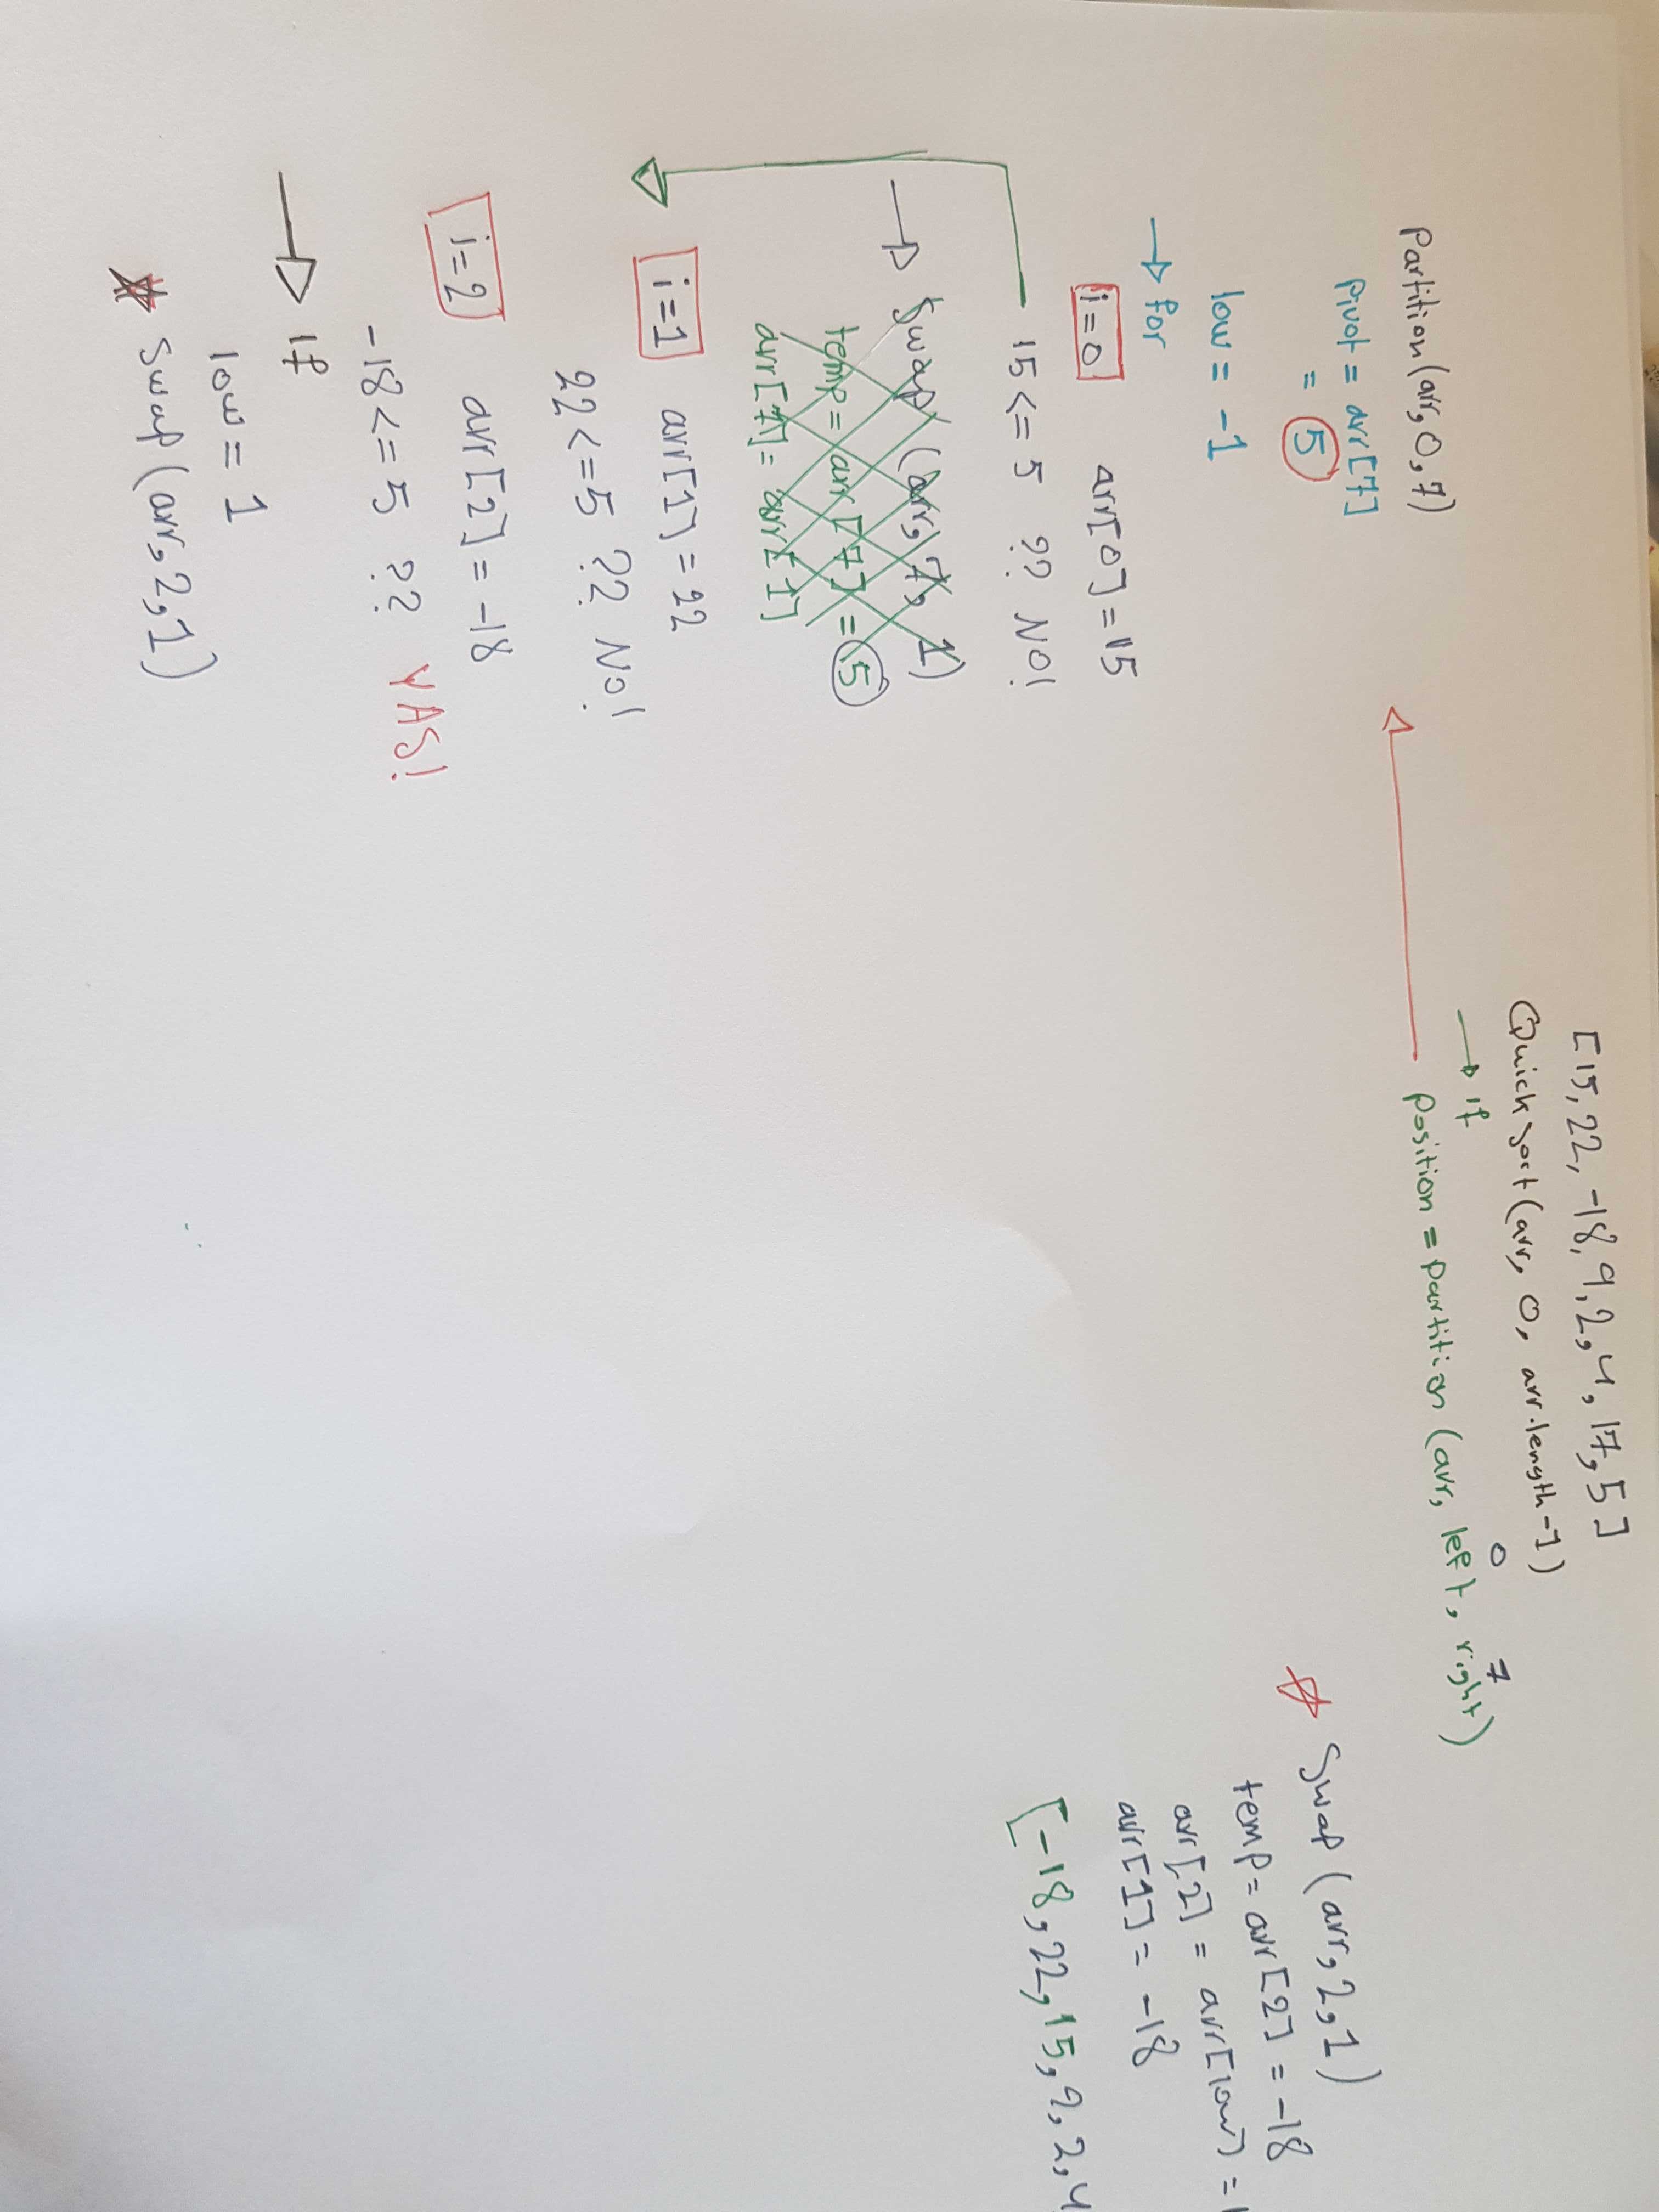 [15, 22, -18, 9, 2, 4, 17, 5]
Quick sort (arr, 0, arr.length-1)
If
0 7
Position = Partition (arr, left, right)
Partition (arr, 0, 7)
Pivot = arr[7]
= 5
low = -1
for
i=0 arr[0] = 15
15 <= 5 ?? NO!
Swap (arr, 7, 1)
temp = arr[7] = 5
arr[7] = arr[1]
i=1 arr[1] = 22
22 <= 5 ?? NO!
i=2 arr[2] = -18
-18 <= 5 ?? YAS!
If
low = 1
Swap (arr, 2, 1)
Swap (arr, 2, 1)
temp = arr[2] = -18
arr[2] = arr[low] =
arr[1] = -18
[-18, 22, 15, 9, 2, 4